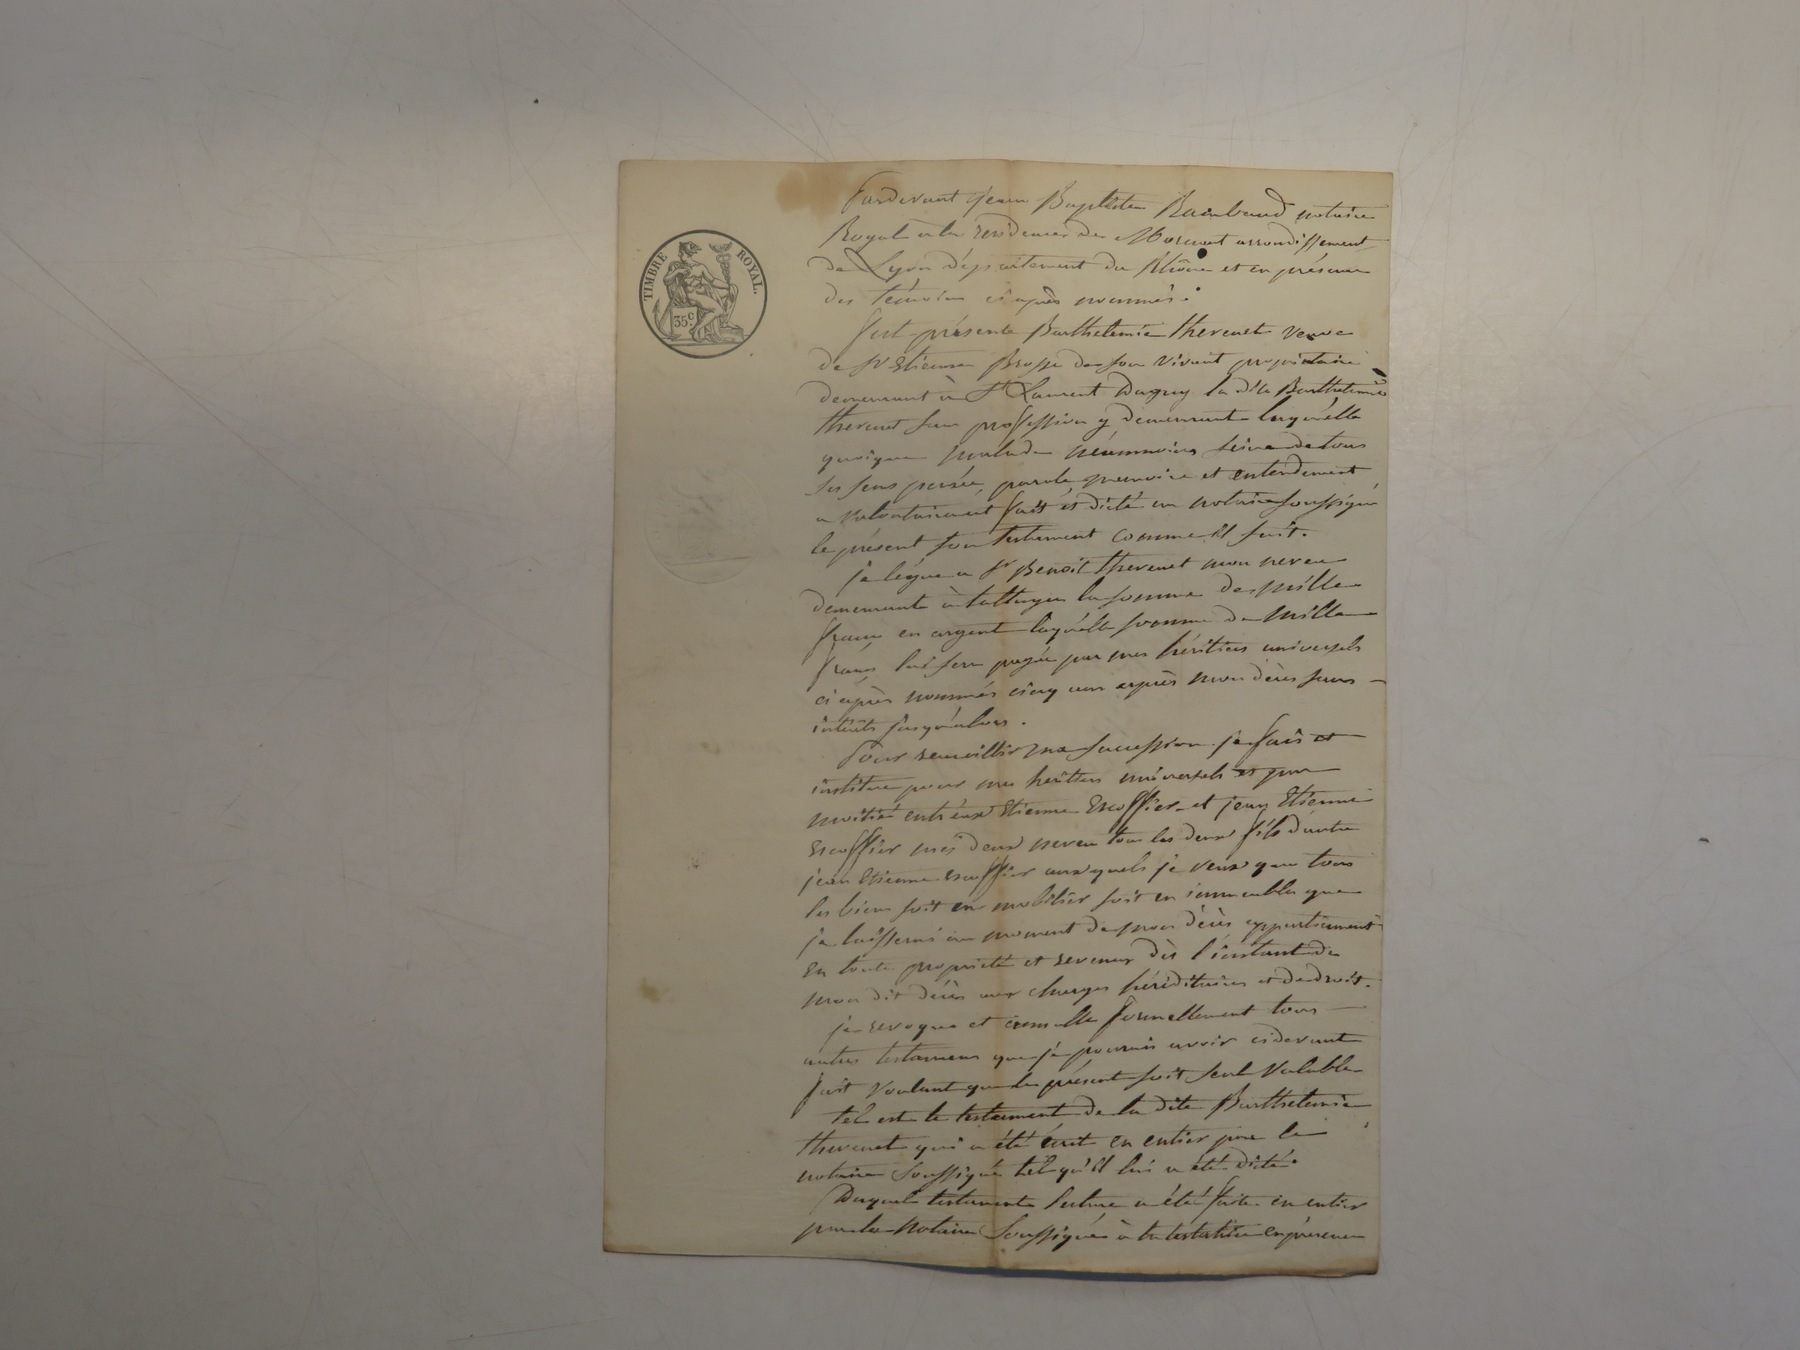 TIMBRE ROYAL.
35c.
Pardevant Jean Baptiste Raimbaud notaire
Royal à la résidence de Mornant arrondissement
de Lyon département du Rhône et en présence
des témoins ci après nommés :
fut présente Barthelemie thevenet veuve
de Sr Etienne Brosse de son vivant propriétaire
demeurant à St Laurent Dagny la dite Barthelemie
thevenet sans proffession y demeurante laquélle
quoique malade néanmoins saine de tous
ses sens pensée, parole, memoire et entendement
a volontairement fait et dicté au notaire soussigné
le présent son testament comme il suit.
je légue a Sr Benoit thevenet mon neveu
demeurant à tattuyer la somme de mille
francs en argent laquélle somme de mille
francs lui sera payée par mes héritiers universels
ci après nommés cinq ans après mon décès sans
intérêts jusqu'alors.
Pour receuillir ma succession je fais et
institue pour mes heritiers universels et par
moitié entr'eux Etienne Escoffier et jean Etienne
Escoffier mes deux neveu tous les deux fils d'autre
jean Etienne Escoffier auxquels je veux que tous
les biens soit en mobilier soit en immeubles que
je laisserai au moment de mon décès appartiennent
en toute propriété et revenus dès l'instant de
mon dit décès aux charges héréditaires et de droit.
je revoque et annulle formellement tous
autres testamens que je pourrais avoir cidevant
fait voulant que le présent soit seul valable
tél est le testament de la dite Barthelemie
thevenet qui a été écrit en entier par le
notaire soussigné tél qu'il lui a été dicté.
Duquel testament lecture a été faite en entier
par le notaire soussigné à la testatrice en présence